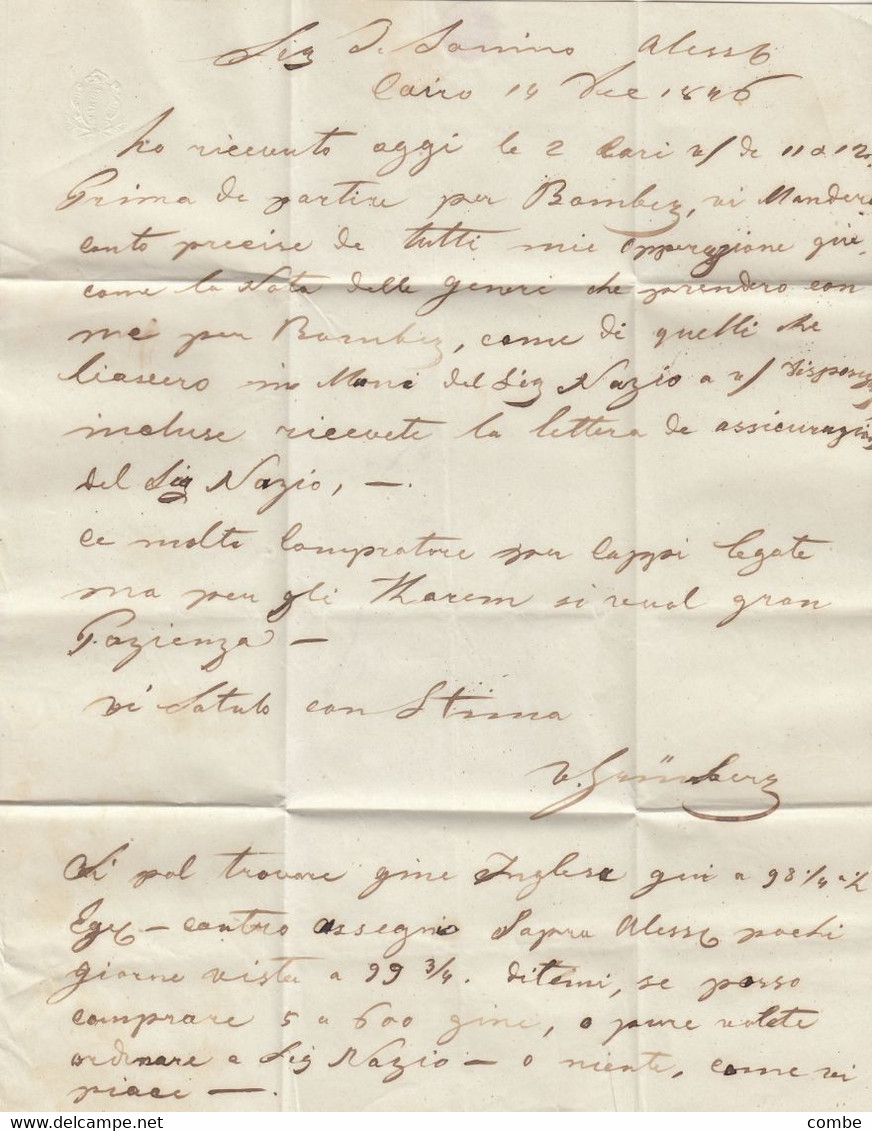 Sig D. Sonino Aless
Cairo 14 Dec 1846
ho ricevuto aggi le 2 Cari v/ de 11 & 12.
Prima de partire per Bombey, vi Mandero
conto precise de tutti mie opperazione gui,
come la Nota delle generi che prendero con
me per Bombey, come di quelli che
liascero in Mani del Sig Nazio a v/ Disposiz
incluse ricevete la lettera de assicurazion
del Sig Nazio, —.
ce molte Compratore per Cappi legate
ma per gli Harem si vuol gran
Pazienza —
vi Saluto con Stima
v. Grünberg
Si pol trovare gine Inglese gui a 98 1/4 a
Egy — contro assegnio Sopra Aless pochi
giorne vista a 99 3/4. ditemi, se posso
comprare 5 a 600 gine, o pure volete
ordinare a Sig Nazio — o niente, come vi
piace —.
combe